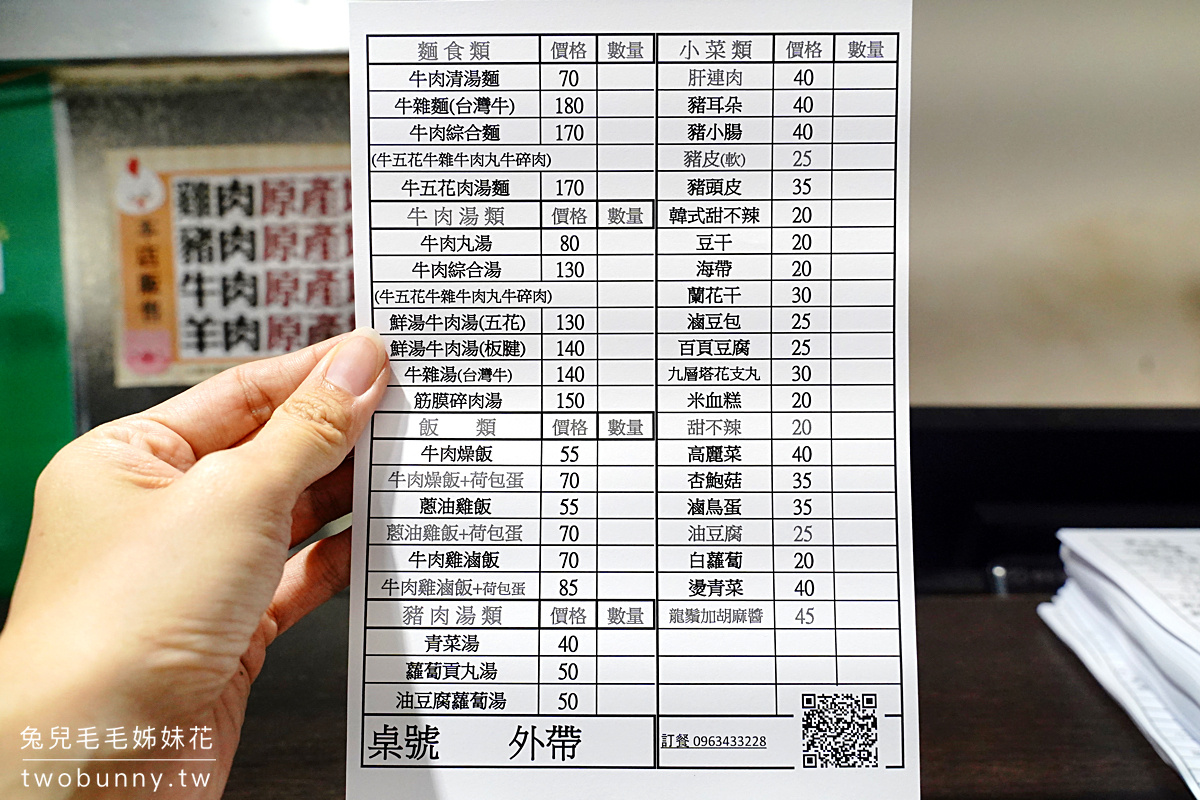 麵食類 價格 數量
牛肉清湯麵 70
牛雜麵(台灣牛) 180
牛肉綜合麵 170
(牛五花牛雜牛肉丸牛碎肉)
牛五花肉湯麵 170
牛肉湯類 價格 數量
牛肉丸湯 80
牛肉綜合湯 130
(牛五花牛雜牛肉丸牛碎肉)
鮮湯牛肉湯(五花) 130
鮮湯牛肉湯(板腱) 140
牛雜湯(台灣牛) 140
筋膜碎肉湯 150
飯 類 價格 數量
牛肉燥飯 55
牛肉燥飯+荷包蛋 70
蔥油雞飯 55
蔥油雞飯+荷包蛋 70
牛肉雞滷飯 70
牛肉雞滷飯+荷包蛋 85
豬肉湯類 價格 數量
青菜湯 40
蘿蔔貢丸湯 50
油豆腐蘿蔔湯 50
桌號 外帶
小菜類 價格 數量
肝連肉 40
豬耳朵 40
豬小腸 40
豬皮(軟) 25
豬頭皮 35
韓式甜不辣 20
豆干 20
海帶 20
蘭花干 30
滷豆包 25
百頁豆腐 25
九層塔花支丸 30
米血糕 20
甜不辣 20
高麗菜 40
杏鮑菇 35
滷鳥蛋 35
油豆腐 25
白蘿蔔 20
燙青菜 40
龍鬚加胡麻醬 45
訂餐 0963433228
雞肉原產
豬肉原產
牛肉原產
羊肉原產
本店販售
兔兒毛毛姊妹花
twobunny.tw